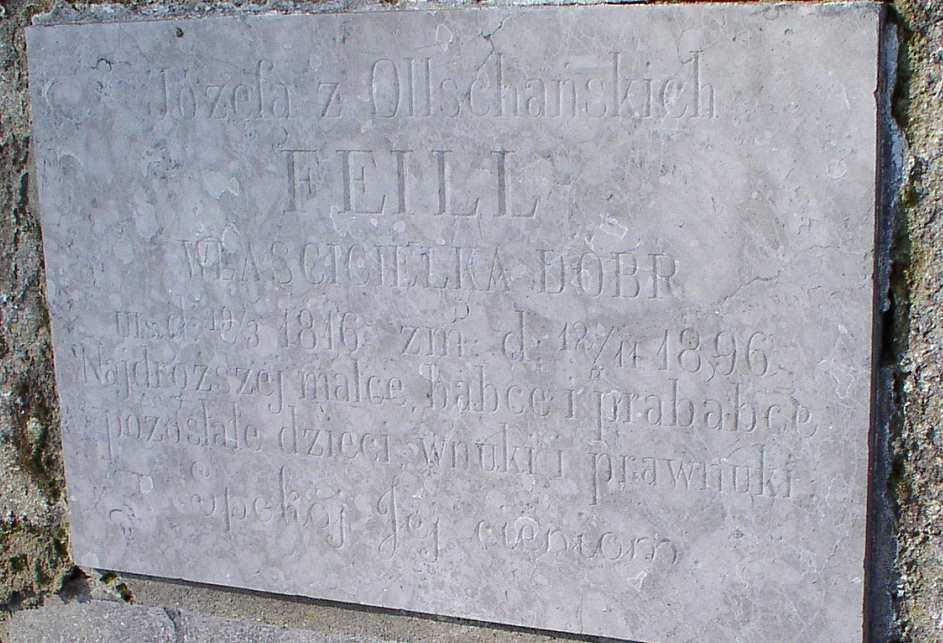 Józefa z Ollschanskich
FEILL
WŁAŚCICIELKA DÓBR
ur. d. 19/3 1816 zm. d. 18/11 1896
Najdroższej matce, babce i prababce
pozostałe dzieci, wnuki i prawnuki
Spokój Jej cieniom